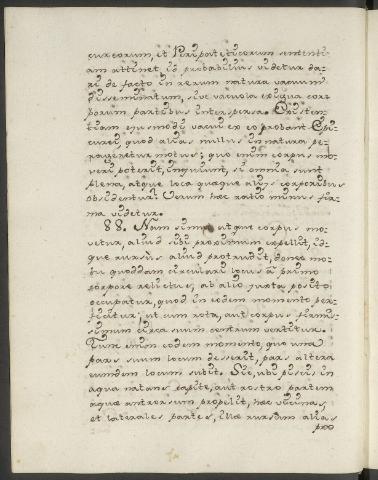 cureorum, et Peripateticorum sententi=
am attinet, id probabilius videtur da=
ri de facto in rerum natura vacuum
disseminatum, sive vacuola exigua cor=
porum partibus interspersa. Existen=
tiam ejusmodi vacui ex eo probant Epi=
curei, quod alias nullus in natura pe=
rageretur motus; quo enim corpus mo=
veri poterit, inquiunt, si omnia sunt
plena, atque loca quæque aliis corporibus
obsidentur. Verum hæc ratio minus fir=
ma videtur.
88. Nam simul atque corpus mo=
vetur, aliud sibi proximum expellit, id=
que rursus aliud protrudit, donec mo=
tu quoddam circulari locus a primo
corpore relictus, ab alio juxta posito
occupatur, quod in eodem momento per=
ficitur, ut cum rota, aut corpus firmis=
simum circa suum centrum vertitur.
Tum enim eodem momento, quo una
pars suum locum deserit, pars altera
eumdem locum subit. Sic, ubi piscis in
aqua natans capite, aut rostro partem
aquæ antrorsum propellit, hæc vicinas,
et laterales partes, illæ rursum alias
pro